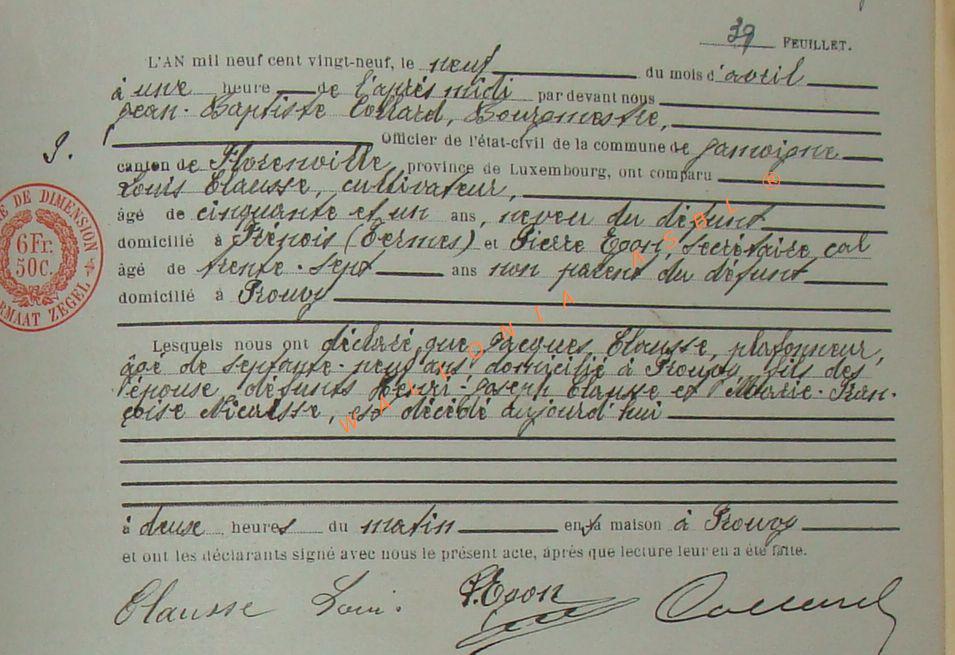 39 FEUILLET.
L'AN mil neuf cent vingt-neuf, le neuf du mois d'avril
à une heure de l'après midi par devant nous
Jean-Baptiste Collard, Bourgmestre,
Officier de l'état-civil de la commune de Jamoigne
9.
canton de Florenville, province de Luxembourg, ont comparu
Louis Clausse, cultivateur,
âgé de cinquante et un ans, neveu du défunt
domicilié à Frénois (Termes) et Pierre Egon, secrétaire cal
âgé de trente-sept ans non parent du défunt
domicilié à Prouvy
Lesquels nous ont déclaré que Jacques Clausse, plafonneur,
âgé de septante-neuf ans, domicilié à Prouvy, fils des
épouse défunts Henri-Joseph Clausse et Marie-Fran-
çoise Nicaisse, est décédé aujourd'hui
à deux heures du matin en sa maison à Prouvy
et ont les déclarants signé avec nous le présent acte, après que lecture leur en a été faite.
Clausse Louis. P. Egon Collard
E DE DIMENSION
6Fr.
50C.
RMAAT ZEGEL
WALLONIA ASBL ®